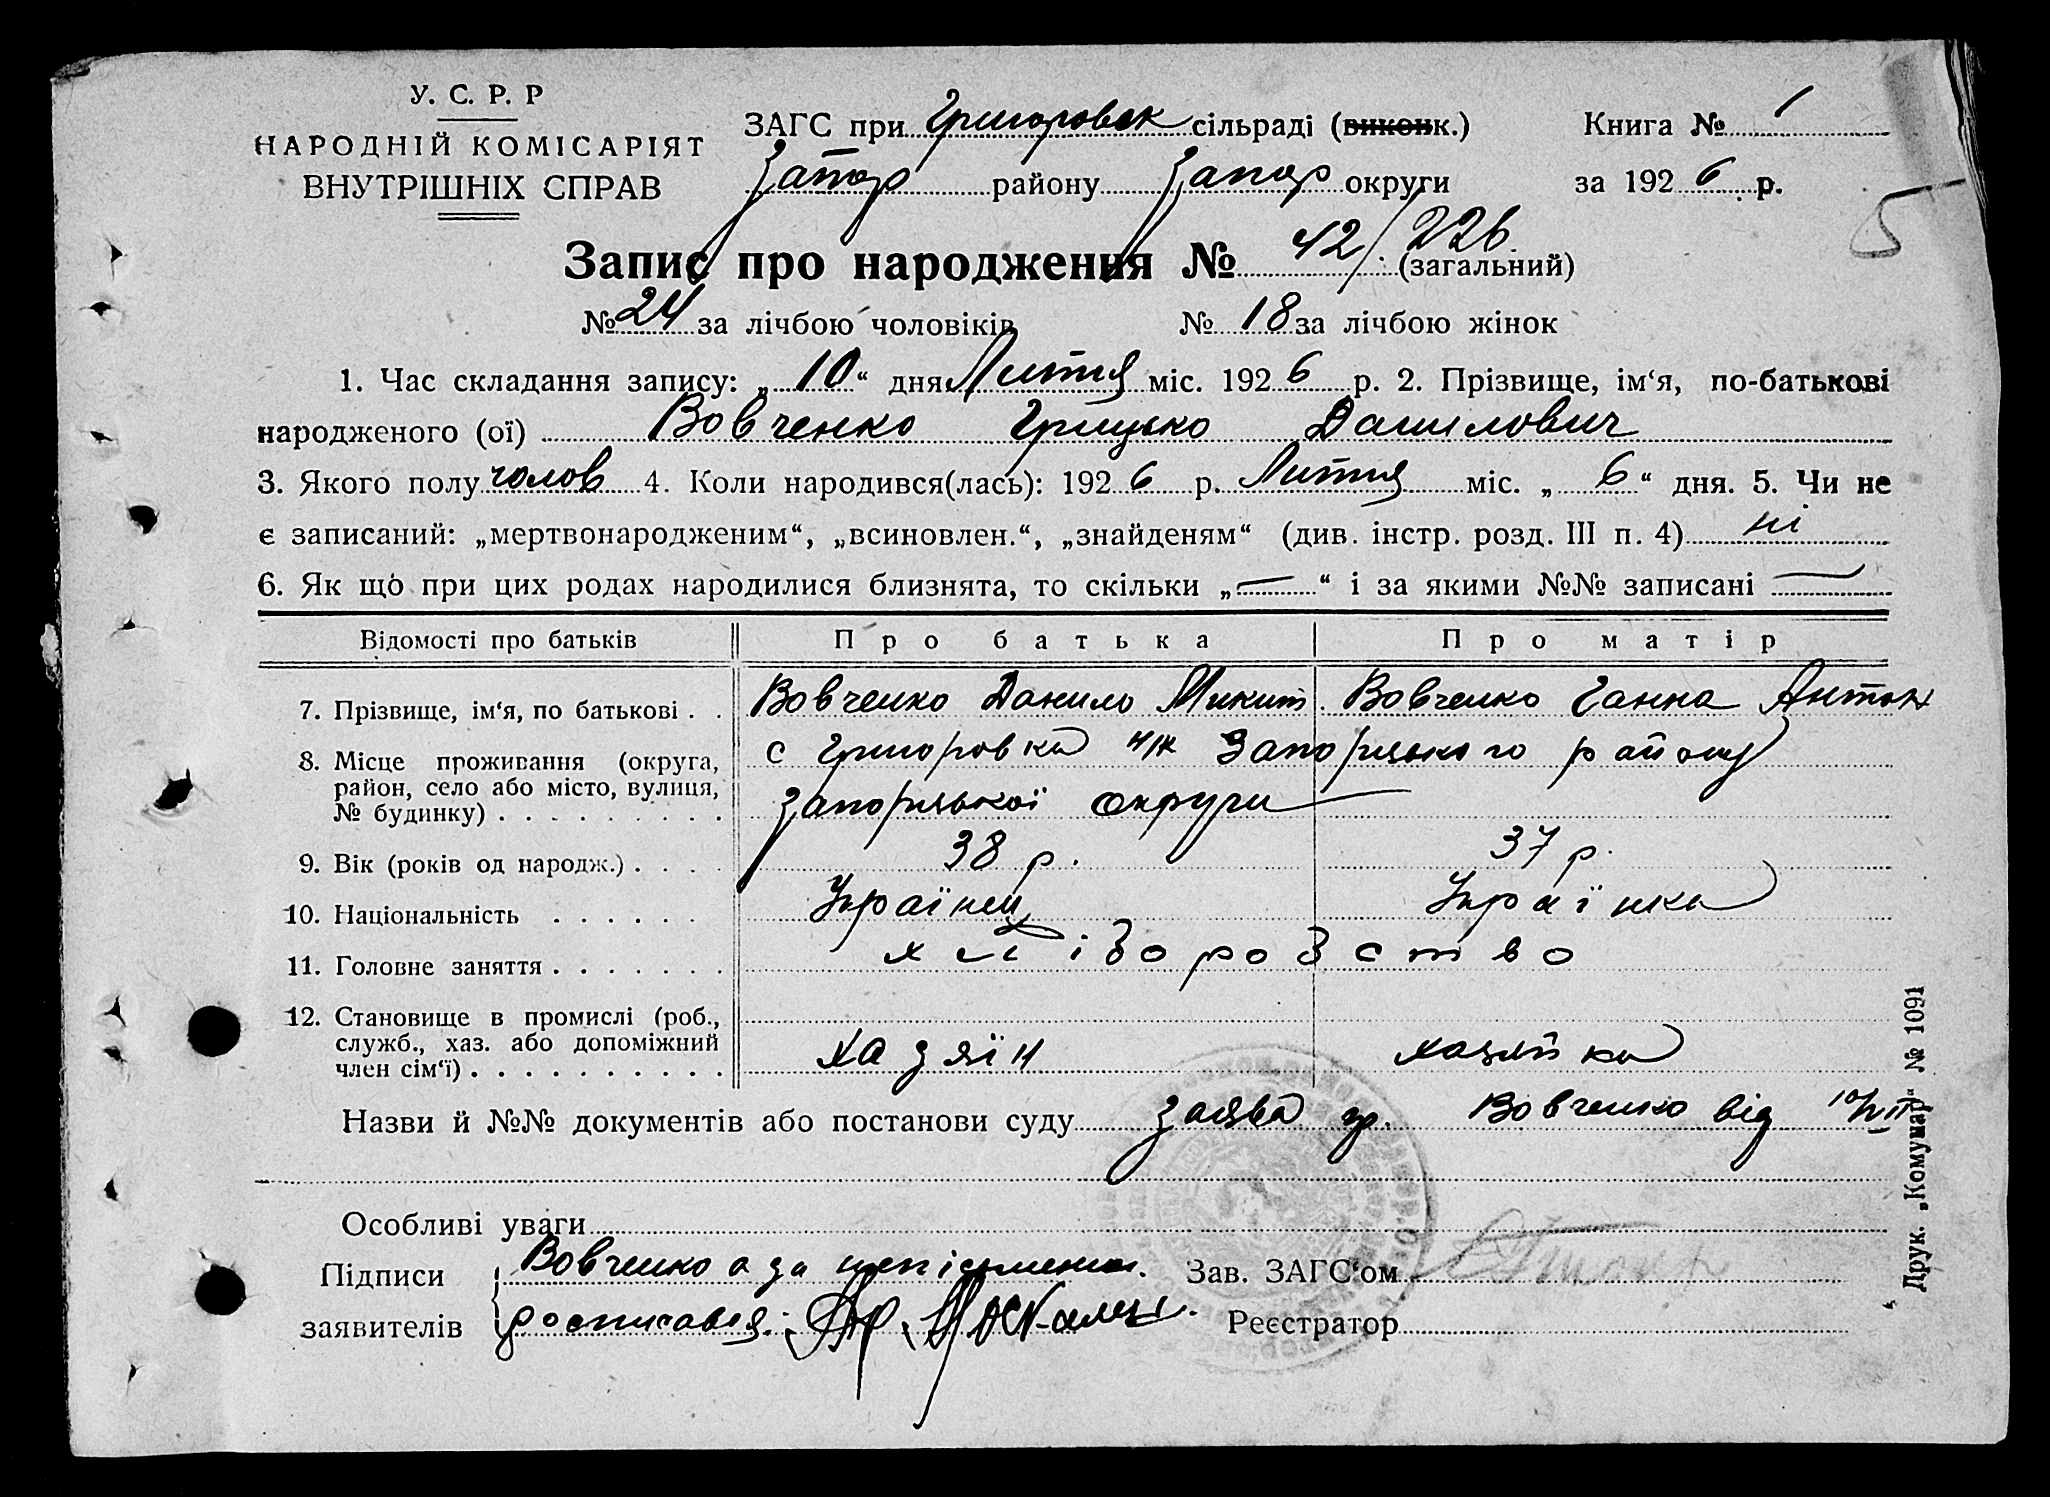 У. С. Р. Р
НАРОДНІЙ КОМІСАРІЯТ
ВНУТРІШНІХ СПРАВ
ЗАГС при Григоровск сільраді (виконк.)
Запор району Запор округи
Книга № 1
за 1926 р.
5
Запис про народження № 42/226 (загальний)
№ 24 за лічбою чоловіків № 18 за лічбою жінок
1. Час складання запису: „10“ дня Лютня міс. 1926 р. 2. Прізвище, ім‘я, по-батькові
народженого (ої) Вовченко Грицько Данилович
3. Якого полу чолов 4. Коли народився(лась): 1926 р. Лютня міс. „6“ дня. 5. Чи не
є записаний: „мертвонародженим“, „всиновлен.“, „знайденям“ (див. інстр. розд. III п. 4) ні
6. Як що при цих родах народилися близнята, то скільки „—“ і за якими №№ записані —
Відомості про батьків Про батька Про матір
7. Прізвище, ім‘я, по батькові . . Вовченко Данило Микит. Вовченко Ганна Антон
8. Місце проживання (округа, район, село або місто, вулиця, № будинку) . . . . . . . . . с Григоровка Запорізького району
Запорізької округи
9. Вік (років од народж.) . . . . 38 р. 37 р.
10. Національність . . . . . . Українец Українка
11. Головне заняття . . . . . . . хліборобство
12. Становище в промислі (роб., служб., хаз. або допоміжний член сім‘ї) . . . . . . . . . . хазяїн хазяйка
Назви й №№ документів або постанови суду заява гр. Вовченко від 10/II
Особливі уваги
Підписи заявителів { Вовченко а за неписьменн.
росписався:
Зав. ЗАГС‘ом
Реєстратор
Друк. „Комунар“ № 1091